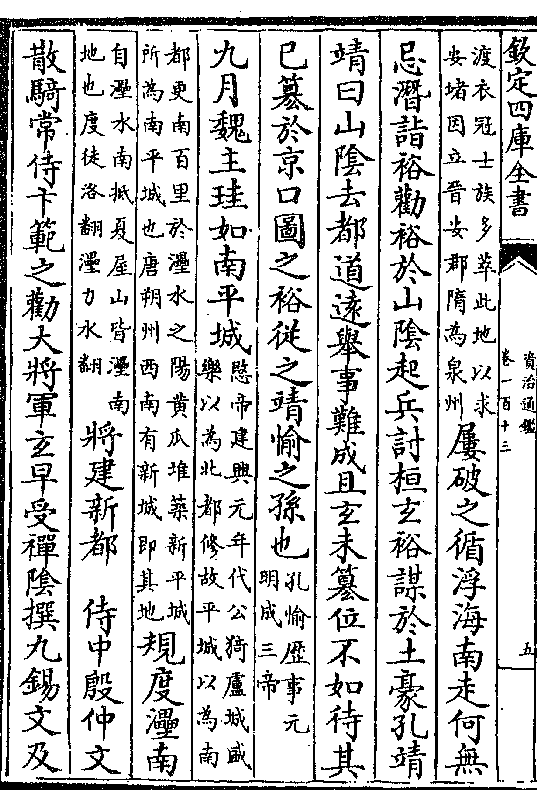 欽定四庫全書
資治通鑑
卷一百十三
五
渡衣冠士族多萃此地以求
安堵因立晉安郡隋為泉州
屢破之循浮海南走何無
忌潛詣裕勸裕於山陰起兵討桓玄裕謀於土豪孔靖
靖曰山陰去都道遠舉事難成且玄未簒位不如待其
已簒於京口圖之裕從之靖愉之孫也
孔愉歷事元
明成三帝
九月魏主珪如南平城
愍帝建興元年代公猗盧城盛
樂以為北都修故平城以為南
都更南百里於㶟水之陽黄瓜堆築新平城
所為南平城也唐朔州西南有新城即其地
規度㶟南
自㶟水南抵夏屋山皆㶟南
地也度徒洛翻㶟力水翻
將建新都　侍中殷仲文
散騎常侍卞範之勸大將軍玄早受禪陰撰九錫文及